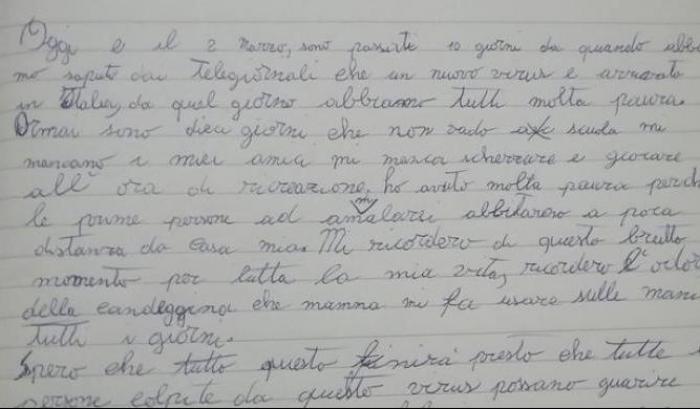 Oggi e il 2 marzo, sono passate 10 giorni da quando abbi
mo saputo dai telegiornali che un nuovo virus e arrivato
in Italia, da quel giorno abbiamo tutti molta paura.
Ormai sono dieci giorni che non vado a scuola mi
mancano i miei amici mi manca scherzare e giocare
all'ora di ricreazione, ho avuto molta paura perch
le prime persone ad ammalarsi abitavano a poca
distanza da casa mia. Mi ricordero di questo brutto
momento per tutta la mia vita, ricordero l'odor
della candeggina che mamma mi fa usare sulle mani
tutti i giorni.
Spero che tutto questo finirà presto che tutte
persone colpite da questo virus possano guarire